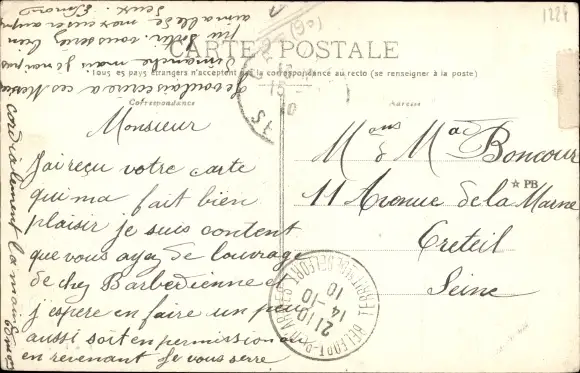 CARTE POSTALE
Tous les pays étrangers n'acceptent pas la correspondance au recto (se renseigner à la poste)
Correspondance
Adresse
1224
Monsieur
J'ai reçu votre carte
qui ma fait bien
plaisir je suis content
que vous ayez de louvrage
de chez Barbedienne et
j espere en faire un peu
aussi soit en permission ou
en revenant Je vous serre
cordialement la main
Je voulais
Dimanche mais je n'ai pas
pu
Mons & Mad Boncour
11 Avenue de la Marne
Creteil
Seine
☆PB
21 10
14-10
10
BELFORT